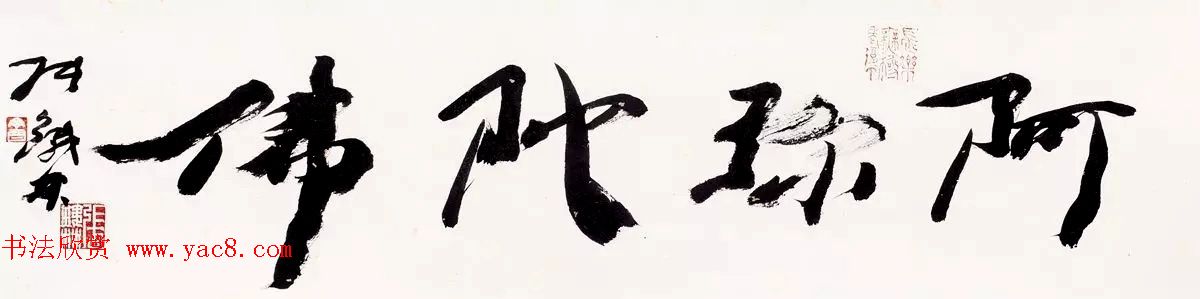 阿弥陀佛
张铁林
书法欣赏 www.yac8.com